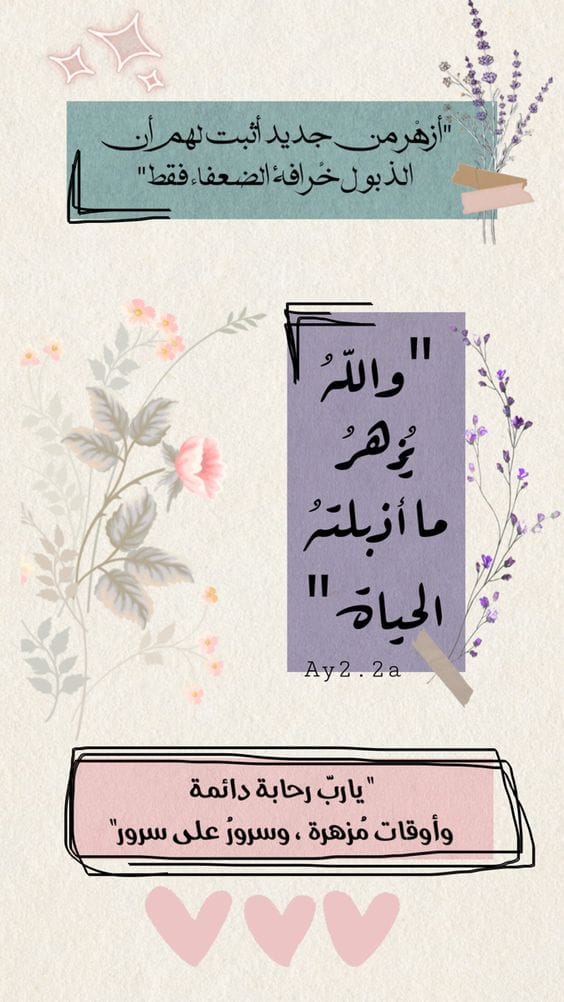 "أزهْر من جديد أثبت لهم أن
الذبول خُرافةُ الضعفاء فقط"
"واللّهُ
يُزهرُ
ما أذبلتهُ
الحياة"
Ay2.2a
"ياربّ رحابة دائمة
وأوقات مُزهرة ، وسرورُ على سرور"